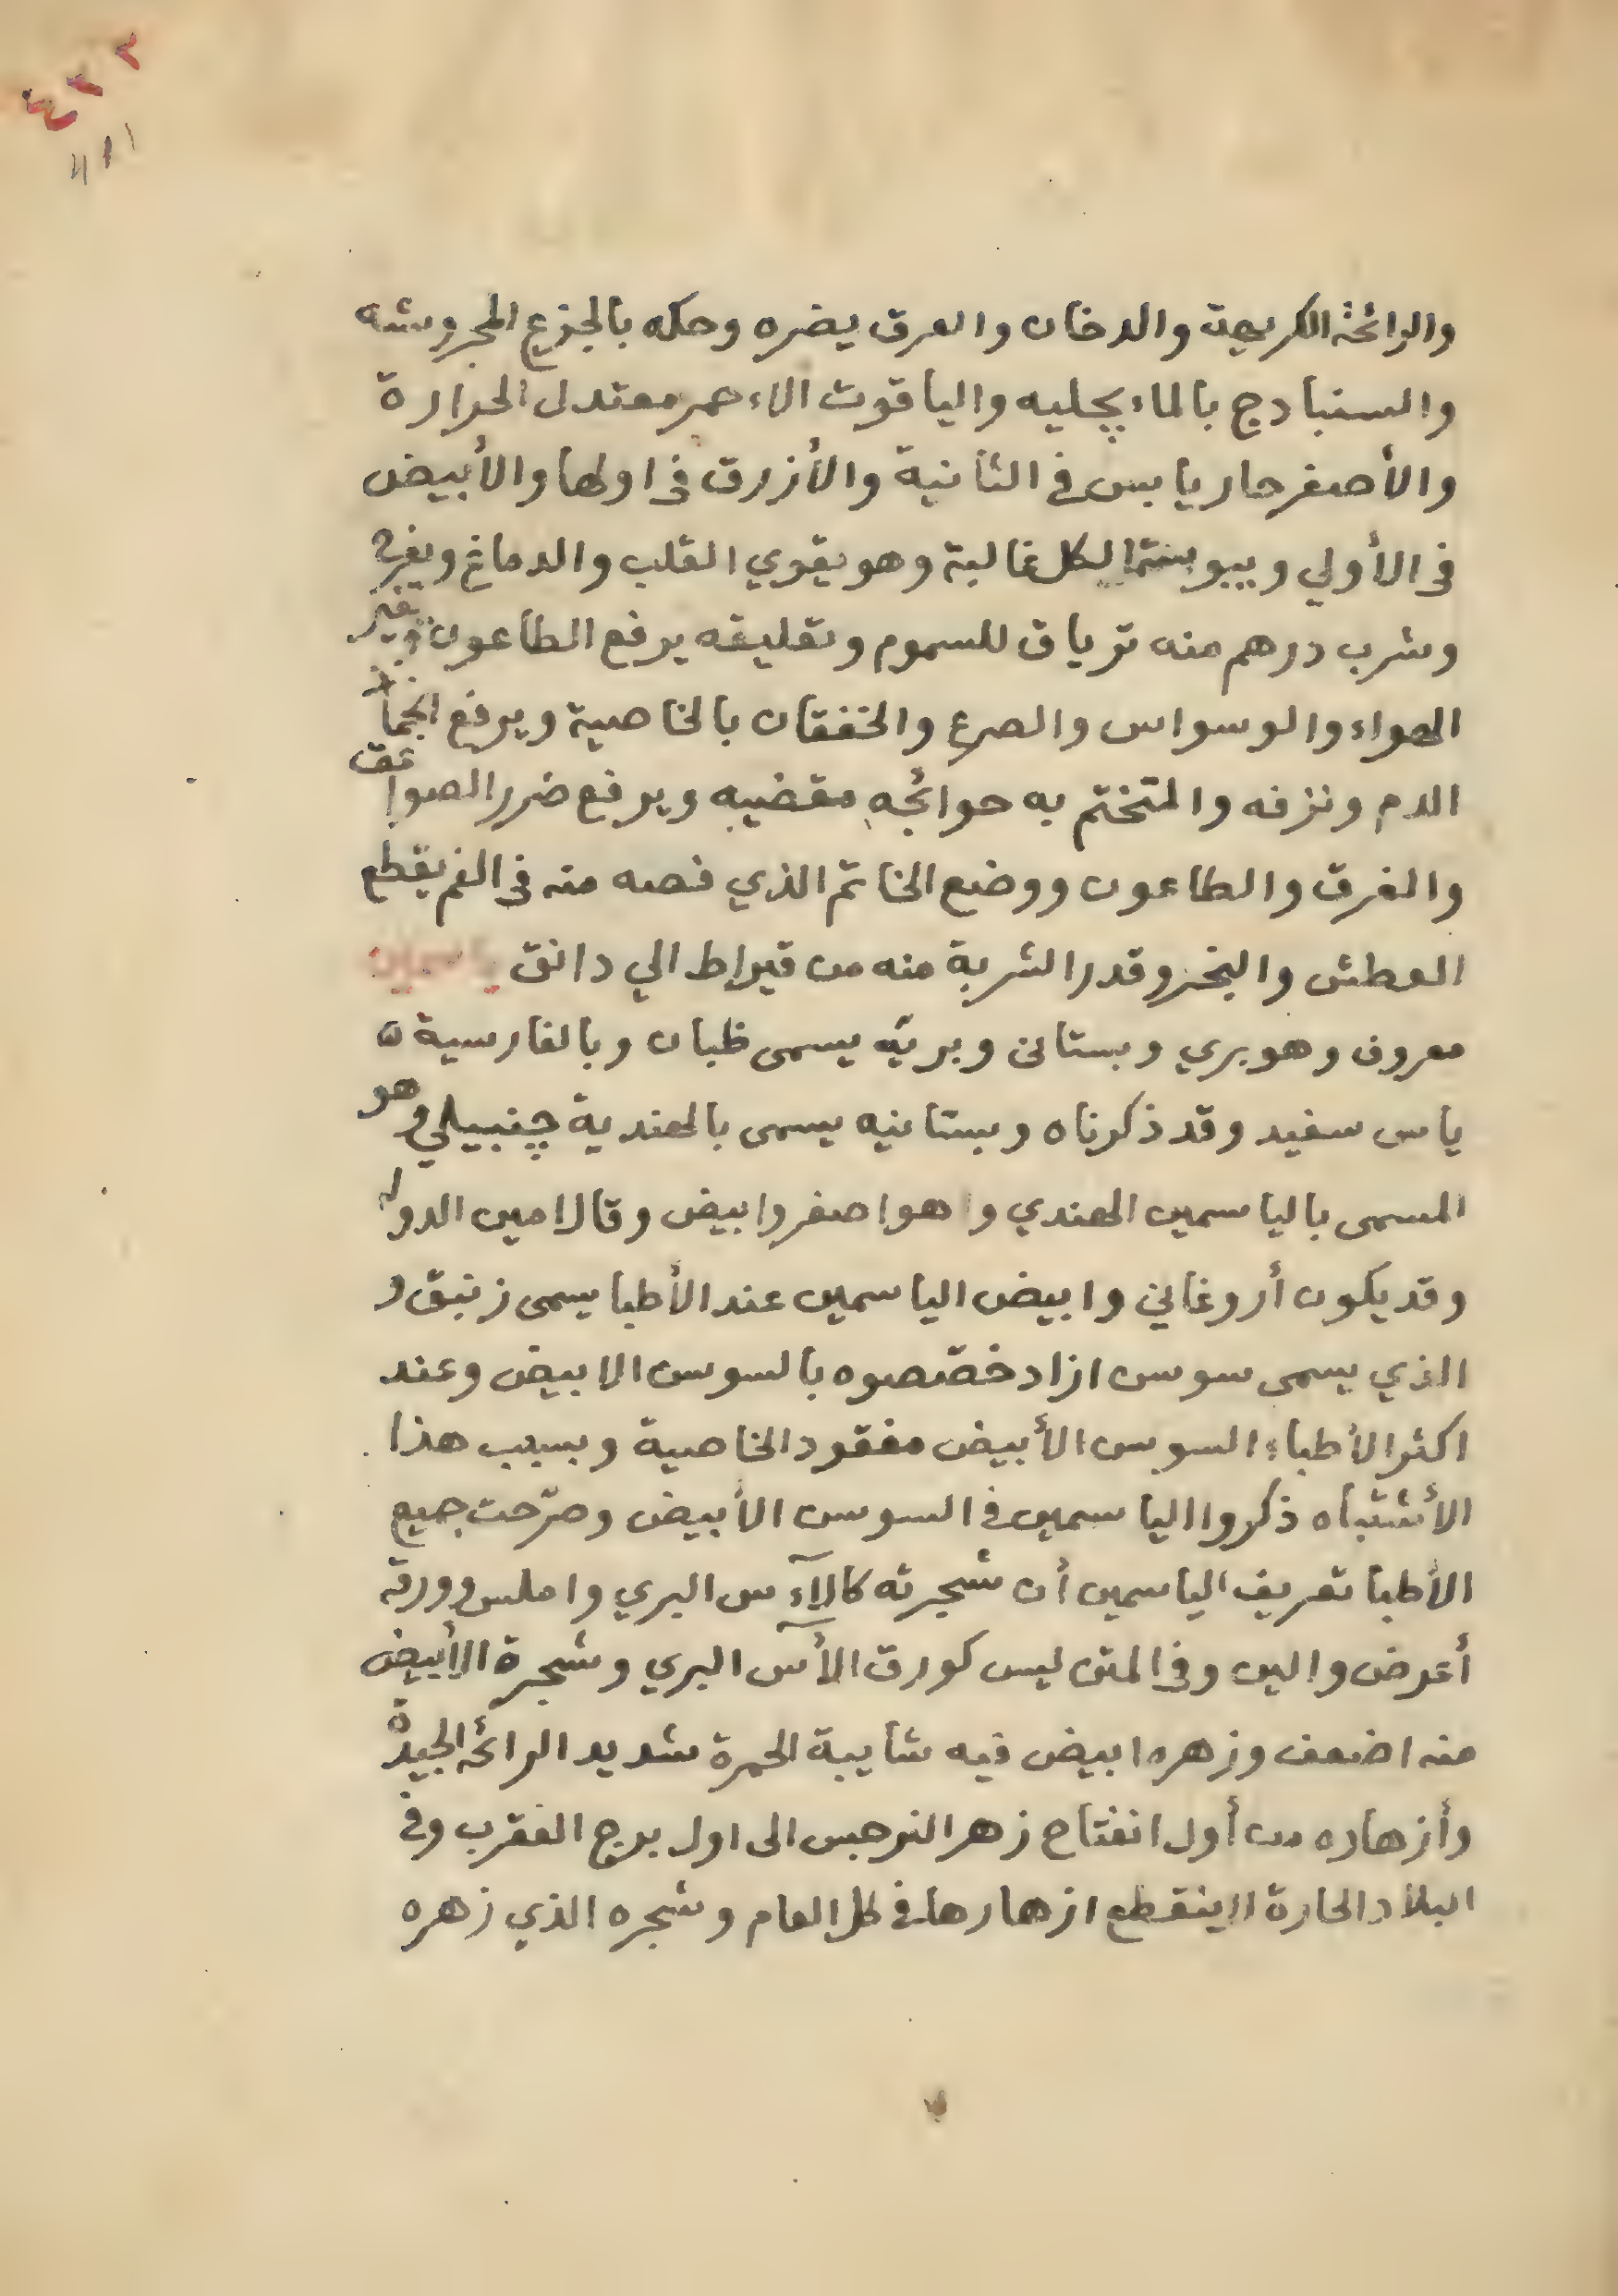 ٤٢٢
٤١١
والرائحة الكريهة والدخان والعرق يضره وحكه بالجزع المحروشه
والسنبادج بالماء يجليه والياقوت الاءحمر معتدل الحرارة
والأصفر حار يابس في الثانية والأزرق في اولها والأبيض
في الأولي ويبوستها لكل غالبة وهو يقوي القلب والدماغ ويفرح
وشرب درهم منه ترياق للسموم وتعليقه يرفع الطاعون وتغير
الهواء والوسواس والصرع والخفقان بالخاصية ويرفع انجماد
الدم ونزفه والمتختم به حوائجه مقضيه ويرفع ضرر الصواعق
والغرق والطاعون ووضع الخاتم الذي فصه منه في الفم يقطع
العطش والبخر وقدر الشربة منه من قيراط الي دانق ياسمين
معروف وهو بري وبستاني وبريّه يسمى ظيان وبالفارسية ه
ياس سفيد وقد ذكرناه وبستانيه يسمى بالهندية چنبيلي وهو
المسمى بالياسمين الهندي وا هو اصفر وابيض وقال امين الدوله
وقد يكون أروغاني وابيض الياسمين عند الأطبا يسمى زنبق و
الذي يسمى سوسن ازاد خصّصوه بالسوسن الابيض وعند
اكثر الأطباء السوسن الأبيض مفقود الخاصية وبسبب هذا
الأشتباه ذكروا الياسمين في السوسن الأبيض وصرّحت جميع
الأطبا تعريف الياسمين أن شجرته كالآء س البري واملس وورقه
أعرض والين وفي المتن ليس كورق الأس البري وشجرة الأبيض
منه اضعف وزهره ابيض فيه شايبة الحمرة شديد الرائحه الجيدة
وأزهاره من أول انفتاح زهر النرجس الى اول برج العقرب وفي
البلاد الحارة الاينقطع ازهارها في كل العام وشجره الذي زهره